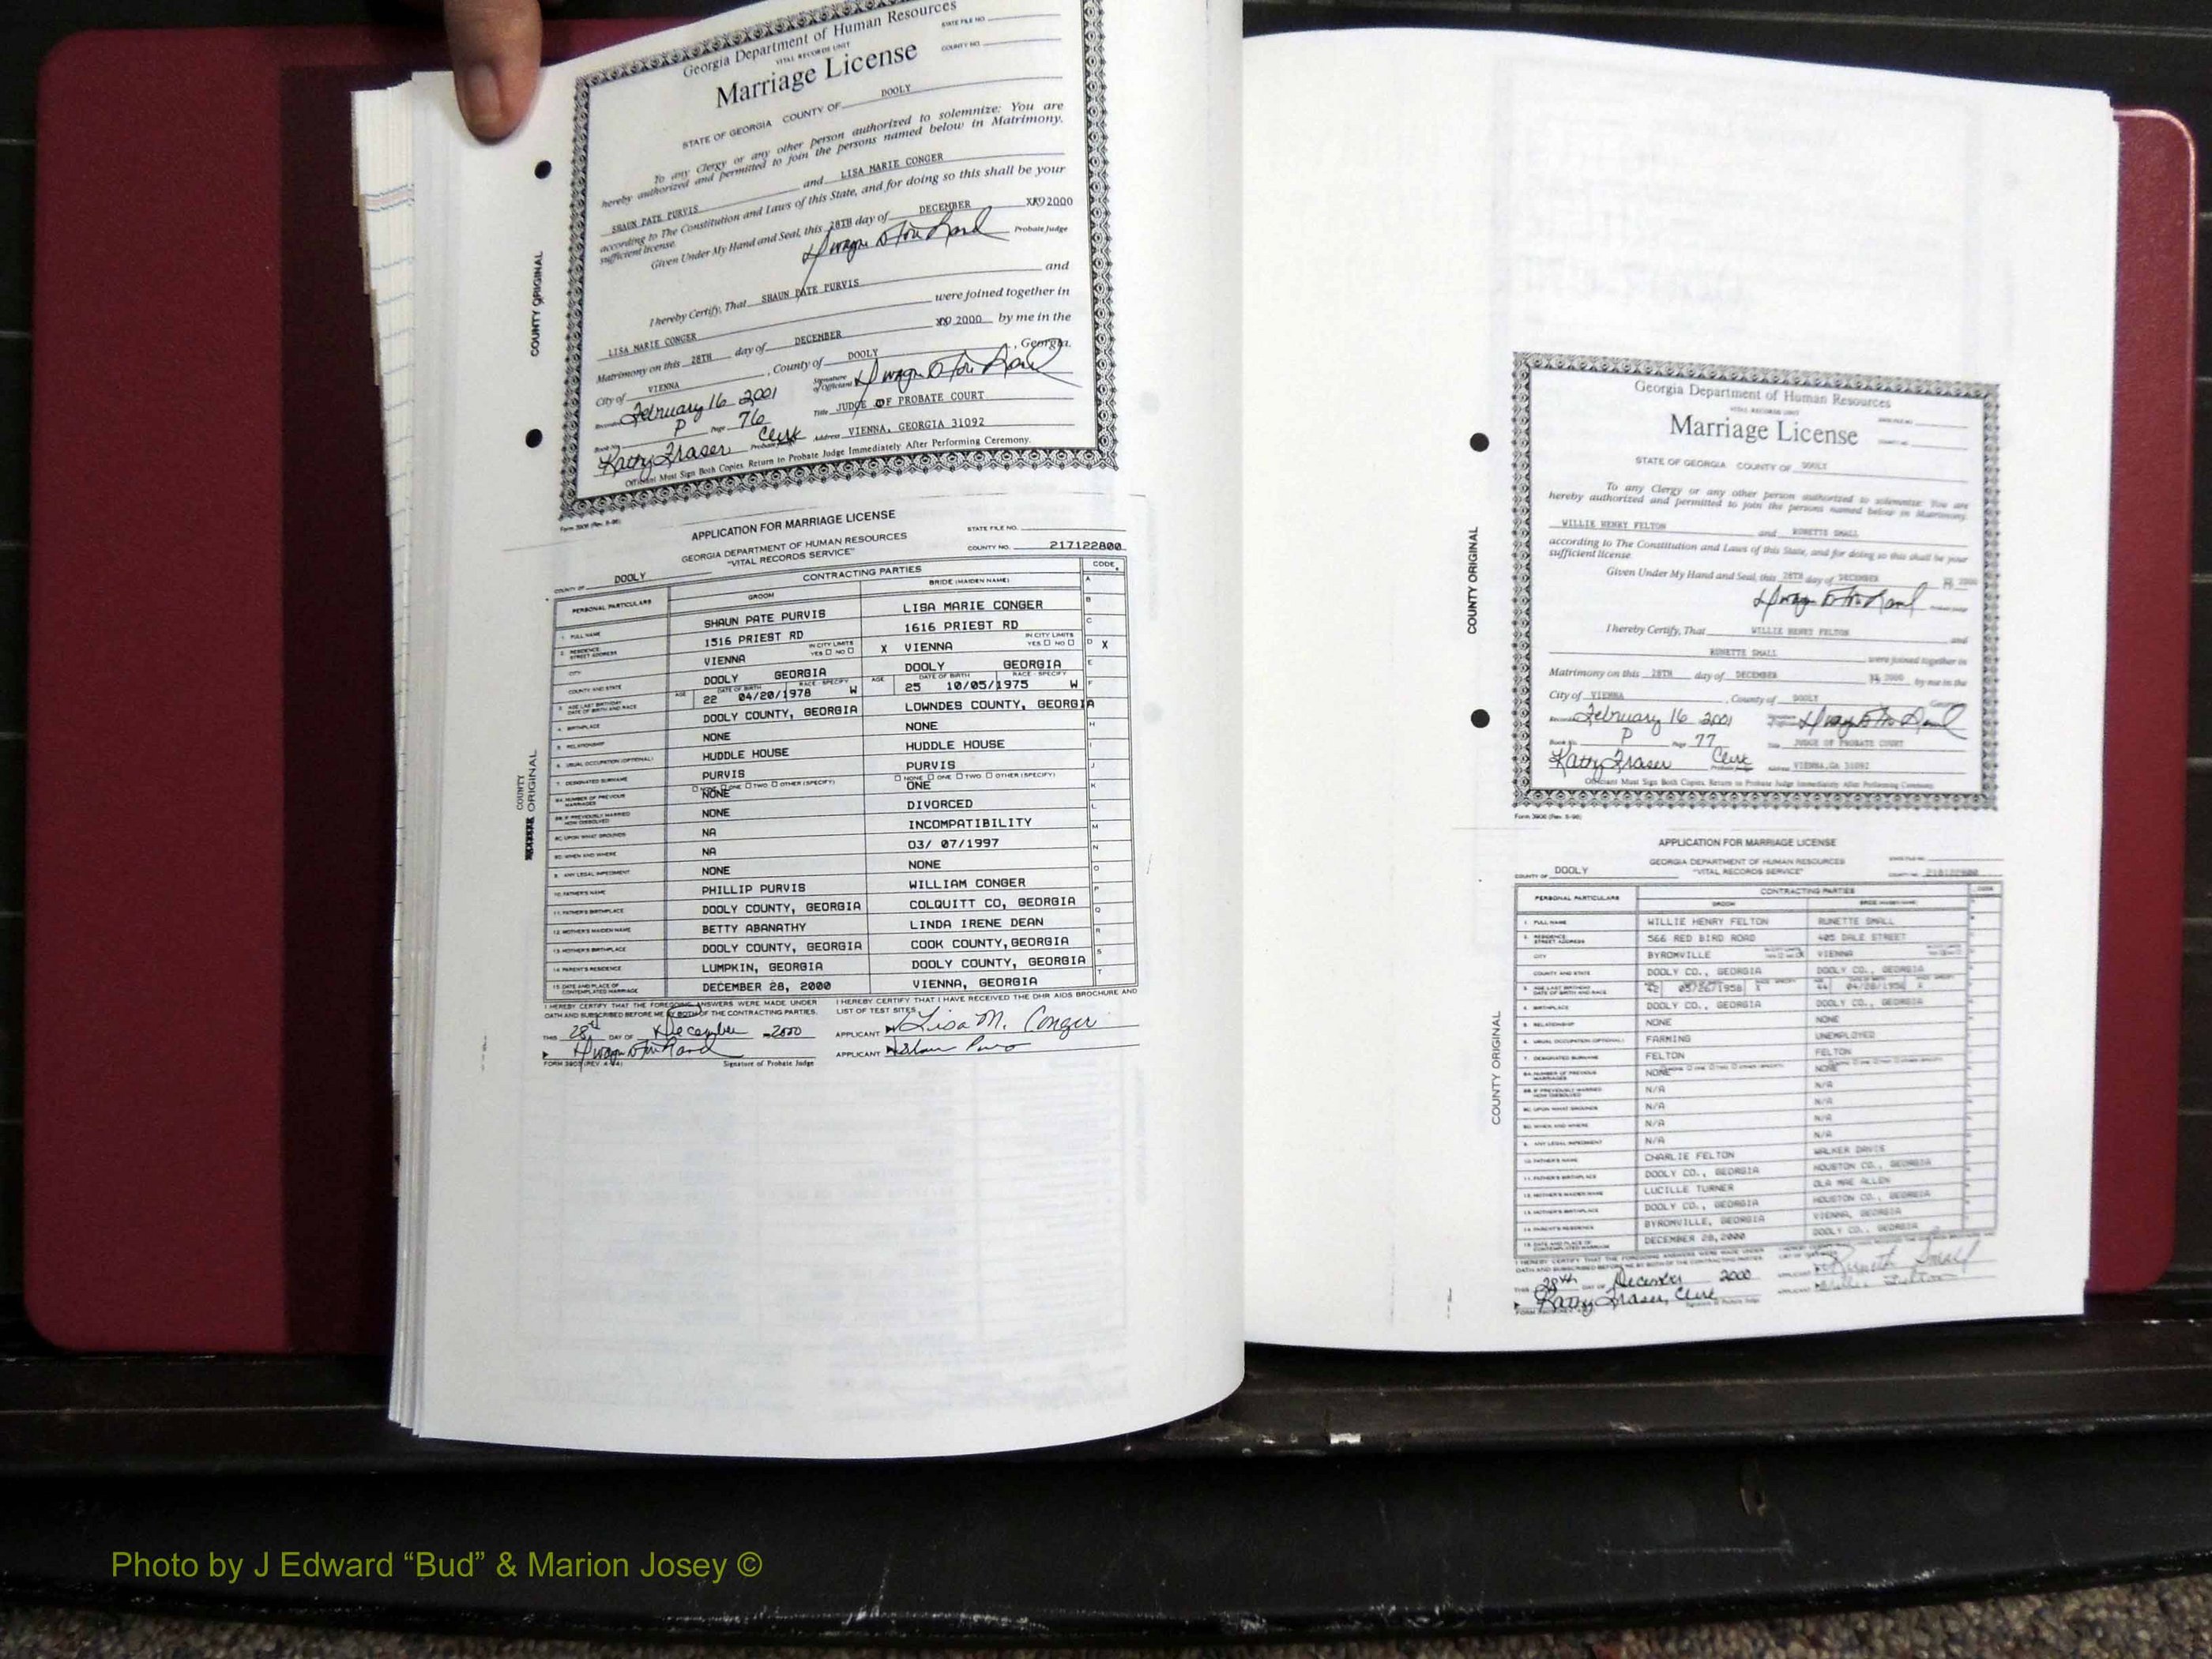 Georgia Department of Human Resources
VITAL RECORDS UNIT
STATE FILE NO.
Marriage License
COUNTY NO.
STATE OF GEORGIA COUNTY OF DOOLY
To any Clergy or any other person authorized to solemnize: You are
hereby authorized and permitted to join the persons named below in Matrimony.
SHAUN PATE PURVIS and LISA MARIE CONGER
according to The Constitution and Laws of this State, and for doing so this shall be your
sufficient license.
Given Under My Hand and Seal, this 28TH day of DECEMBER 2000
Probate Judge
I hereby Certify, That SHAUN PATE PURVIS and
LISA MARIE CONGER were joined together in
Matrimony on this 28TH day of DECEMBER 2000 by me in the
City of VIENNA, County of DOOLY, Georgia.
Recorded February 16 2001 Signature of Officiant
Book No. P Page 76 Title JUDGE OF PROBATE COURT
Kathy Fraser Clerk Address VIENNA, GEORGIA 31092
Officiant Must Sign Both Copies. Return to Probate Judge Immediately After Performing Ceremony.
COUNTY ORIGINAL
Form 3906 (Rev. 8-96)
APPLICATION FOR MARRIAGE LICENSE
GEORGIA DEPARTMENT OF HUMAN RESOURCES STATE FILE NO.
"VITAL RECORDS SERVICE" COUNTY NO. 217122800
COUNTY OF DOOLY
CONTRACTING PARTIES CODE
PERSONAL PARTICULARS GROOM BRIDE (MAIDEN NAME)
1. FULL NAME SHAUN PATE PURVIS LISA MARIE CONGER
2. RESIDENCE STREET ADDRESS 1516 PRIEST RD 1616 PRIEST RD
CITY VIENNA IN CITY LIMITS YES NO X VIENNA IN CITY LIMITS YES NO X
COUNTY AND STATE DOOLY GEORGIA DOOLY GEORGIA
3. AGE LAST BIRTHDAY DATE OF BIRTH AND RACE AGE 22 DATE OF BIRTH 04/20/1978 RACE - SPECIFY W AGE 25 DATE OF BIRTH 10/05/1975 RACE - SPECIFY W
4. BIRTHPLACE DOOLY COUNTY, GEORGIA LOWNDES COUNTY, GEORGIA
5. RELATIONSHIP NONE NONE
6. USUAL OCCUPATION (OPTIONAL) HUDDLE HOUSE HUDDLE HOUSE
7. DESIGNATED SURNAME PURVIS PURVIS
8A. NUMBER OF PREVIOUS MARRIAGES NONE ONE TWO OTHER (SPECIFY) NONE NONE ONE TWO OTHER (SPECIFY) ONE
8B. IF PREVIOUSLY MARRIED HOW DISSOLVED NONE DIVORCED
8C. UPON WHAT GROUNDS NA INCOMPATIBILITY
8D. WHEN AND WHERE NA 03/ 07/1997
9. ANY LEGAL IMPEDIMENT NONE NONE
10. FATHER'S NAME PHILLIP PURVIS WILLIAM CONGER
11. FATHER'S BIRTHPLACE DOOLY COUNTY, GEORGIA COLQUITT CO, GEORGIA
12. MOTHER'S MAIDEN NAME BETTY ABANATHY LINDA IRENE DEAN
13. MOTHER'S BIRTHPLACE DOOLY COUNTY, GEORGIA COOK COUNTY, GEORGIA
14. PARENT'S RESIDENCE LUMPKIN, GEORGIA DOOLY COUNTY, GEORGIA
15. DATE AND PLACE OF CONTEMPLATED MARRIAGE DECEMBER 28, 2000 VIENNA, GEORGIA
I HEREBY CERTIFY THAT THE FOREGOING ANSWERS WERE MADE UNDER I HEREBY CERTIFY THAT I HAVE RECEIVED THE DHR AIDS BROCHURE AND
OATH AND SUBSCRIBED BEFORE ME BY BOTH OF THE CONTRACTING PARTIES. LIST OF TEST SITES
THIS 28th DAY OF December 2000 APPLICANT Lisa M. Conger
APPLICANT
Signature of Probate Judge
COUNTY
ORIGINAL
Georgia Department of Human Resources
VITAL RECORDS UNIT
Marriage License
STATE OF GEORGIA COUNTY OF DOOLY
To any Clergy or any other person authorized to solemnize: You are
hereby authorized and permitted to join the persons named below in Matrimony.
WILLIE HENRY FELTON and RUNETTE SMALL
according to The Constitution and Laws of this State, and for doing so this shall be your
sufficient license.
Given Under My Hand and Seal, this 28TH day of DECEMBER 2000
I hereby Certify, That WILLIE HENRY FELTON and
RUNETTE SMALL were joined together in
Matrimony on this 28TH day of DECEMBER 2000 by me in the
City of VIENNA, County of DOOLY Georgia
February 16 2001
Book No. P Page 77 Title JUDGE OF PROBATE COURT
Kathy Fraser Clerk Address VIENNA, GA 31092
Officiant Must Sign Both Copies. Return to Probate Judge Immediately After Performing Ceremony.
COUNTY ORIGINAL
Form 3906 (Rev. 8-96)
APPLICATION FOR MARRIAGE LICENSE
GEORGIA DEPARTMENT OF HUMAN RESOURCES
"VITAL RECORDS SERVICE"
COUNTY OF DOOLY
CONTRACTING PARTIES
PERSONAL PARTICULARS GROOM
1. FULL NAME WILLIE HENRY FELTON RUNETTE SMALL
2. RESIDENCE STREET ADDRESS 566 RED BIRD ROAD 405 DALE STREET
CITY BYROMVILLE VIENNA
COUNTY AND STATE DOOLY CO., GEORGIA DOOLY CO., GEORGIA
42 44
4. BIRTHPLACE DOOLY CO., GEORGIA DOOLY CO., GEORGIA
5. RELATIONSHIP NONE NONE
6. USUAL OCCUPATION (OPTIONAL) FARMING UNEMPLOYED
7. DESIGNATED SURNAME FELTON FELTON
NONE NONE
N/A N/A
N/A N/A
N/A N/A
9. ANY LEGAL IMPEDIMENT N/A N/A
10. FATHER'S NAME CHARLIE FELTON WALKER DAVIS
11. FATHER'S BIRTHPLACE DOOLY CO., GEORGIA HOUSTON CO., GEORGIA
12. MOTHER'S MAIDEN NAME LUCILLE TURNER OLA MAE ALLEN
13. MOTHER'S BIRTHPLACE DOOLY CO., GEORGIA HOUSTON CO., GEORGIA
14. PARENT'S RESIDENCE BYROMVILLE, GEORGIA VIENNA, GEORGIA
15. DATE AND PLACE OF CONTEMPLATED MARRIAGE DECEMBER 28, 2000 DOOLY CO., GEORGIA
I HEREBY CERTIFY THAT THE FOREGOING ANSWERS WERE MADE UNDER
OATH AND SUBSCRIBED BEFORE ME BY BOTH OF THE CONTRACTING PARTIES
THIS 28th DAY OF December 2000
Kathy Fraser, Clerk
COUNTY ORIGINAL
Photo by J Edward “Bud” & Marion Josey ©